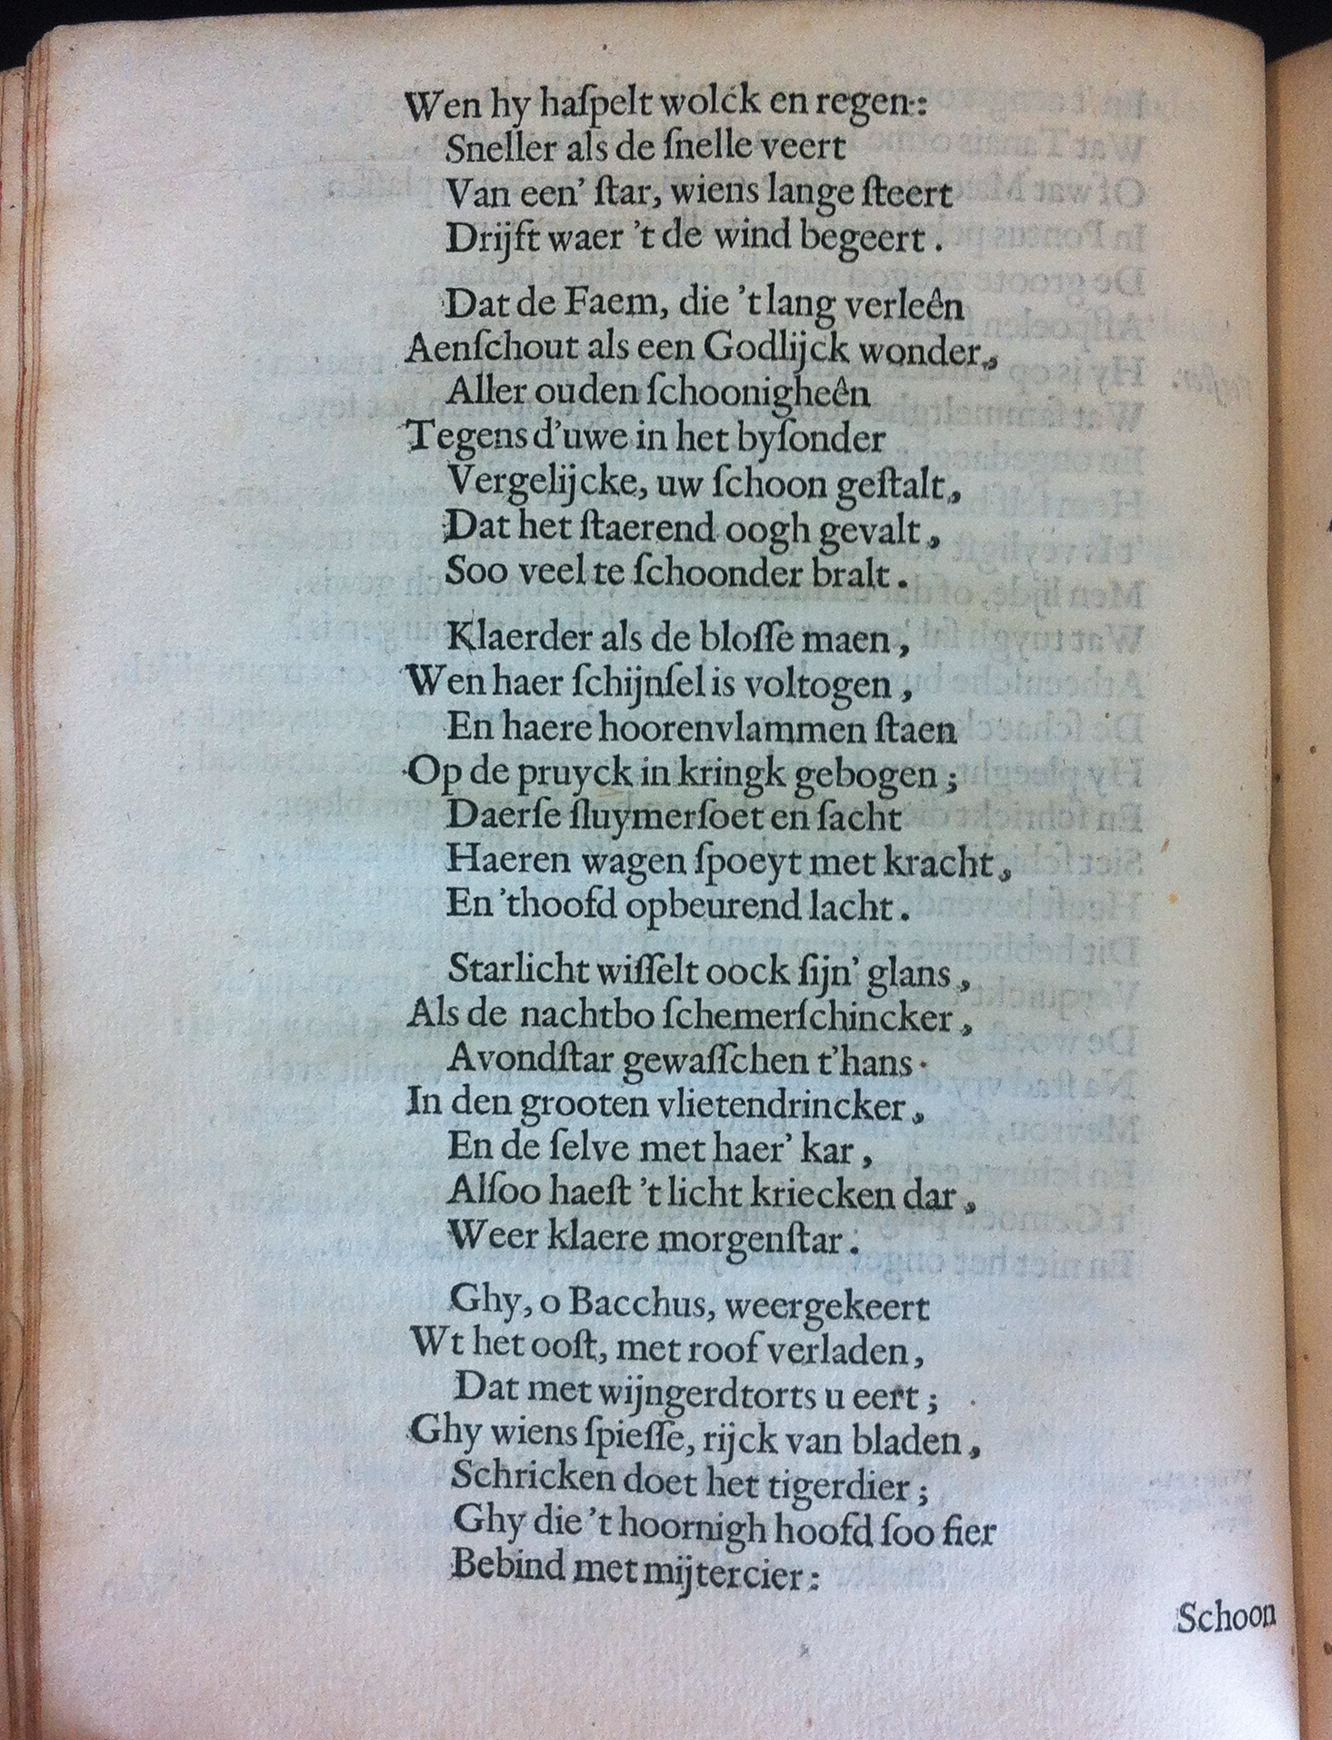 Wen hy haſpelt wolck en regen:
Sneller als de ſnelle veert
Van een' ſtar, wiens lange ſteert
Drijft waer 't de wind begeert.
Dat de Faem, die 't lang verleên
Aenſchout als een Godlijck wonder,
Aller ouden ſchoonigheên
Tegens d'uwe in het byſonder
Vergelijcke, uw ſchoon geſtalt,
Dat het ſtaerend oogh gevalt,
Soo veel te ſchoonder bralt.
Klaerder als de bloſſe maen,
Wen haer ſchijnſel is voltogen,
En haere hoorenvlammen ſtaen
Op de pruyck in kringk gebogen;
Daerſe ſluymerſoet en ſacht
Haeren wagen ſpoeyt met kracht,
En 'thoofd opbeurend lacht.
Starlicht wiſſelt oock ſijn' glans,
Als de nachtbo ſchemerſchincker,
Avondſtar gewaſſchen t'hans
In den grooten vlietendrincker,
En de ſelve met haer' kar,
Alſoo haeſt 't licht kriecken dar,
Weer klaere morgenſtar.
Ghy, o Bacchus, weergekeert
Wt het ooſt, met roof verladen,
Dat met wijngerdtorts u eert;
Ghy wiens ſpieſſe, rijck van bladen,
Schricken doet het tigerdier;
Ghy die 't hoornigh hoofd ſoo fier
Bebind met mijtercier:
Schoon